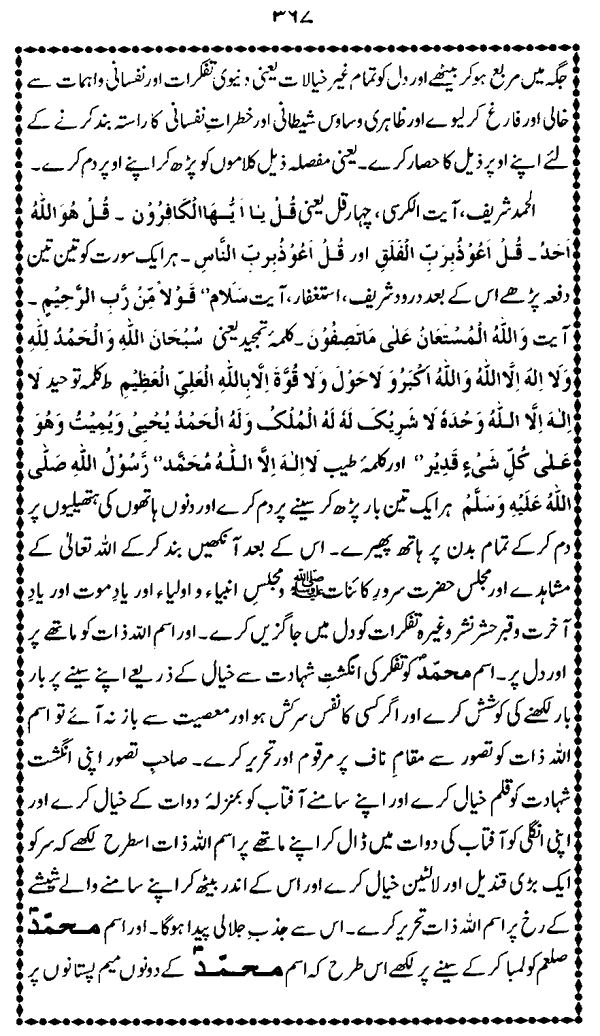 ۳۶۷
جگہ میں مربع ہو کر بیٹھے اور دل کو تمام غیر خیالات یعنی دنیوی تفکرات اور نفسانی واہمات سے
خالی اور فارغ کر لیوے اور ظاہری وساوس شیطانی اور خطراتِ نفسانی کا راستہ بند کرنے کے
لئے اپنے اوپر ذیل کا حصار کرے۔ یعنی مفصلہ ذیل کلاموں کو پڑھ کر اپنے اوپر دم کرے۔
الحمد شریف، آیت الکرسی، چہار قل یعنی قُلْ یٰا اَیُّھَا الْکَافِرُوْن ۔ قُلْ ھُوَ اللّٰهُ
اَحَدُ۔ قُلْ اَعُوْذُ بِرَبِّ الْفَلَقِ اور قُلْ اَعُوْذُ بِرَبِّ النَّاسِ ۔ ہر ایک سورت کو تین تین
دفعہ پڑھے اس کے بعد درود شریف، استغفار، آیت سَلَام’‘ قَوْلاً مِّنْ رَّبِّ الرَّحِیْمِ ۔
آیت وَاللّٰهُ الْمُسْتَعَانُ عَلٰی مَاتَصِفُوْنَ ۔ کلمۂ تمجید یعنی سُبْحَانَ اللّٰهِ وَالْحَمْدُ لِلّٰهِ
وَلَا اِلٰهَ اِلَّا اللّٰهُ وَاللّٰهُ اَکْبَرُ وَ لَاحَوْلَ وَلَا قُوَّةَ اِلَّا بِاللّٰهِ الْعَلِیِّ الْعَظِیْمِ ط کلمہ توحید لَا
اِلٰهَ اِلَّا اللّٰهُ وَحْدَهٗ لَا شَرِیْکَ لَهٗ لَهُ الْمُلْکُ وَلَهُ الْحَمْدُ یُحْیٖ وَیُمِیْتُ وَهُوَ
عَلٰی کُلِّ شَیْءٍ قَدِیْر’‘ اور کلمۂ طیب لَااِلٰهَ اِلَّا اللّٰهُ مُحَمَّد’‘ رَّسُوْلُ اللّٰهِ صَلَّی
اللّٰهُ عَلَیْهِ وَسَلَّمْ ہر ایک تین بار پڑھ کر سینے پر دم کرے اور دونوں ہاتھوں کی ہتھیلیوں پر
دم کر کے تمام بدن پر ہاتھ پھیرے۔ اس کے بعد آنکھیں بند کر کے اللہ تعالیٰ کے
مشاہدے اور مجلس حضرت سرورِ کائنات ﷺ و مجلسِ انبیاء و اولیاء اور یادِ موت اور یادِ
آخرت و قبر حشر نشر وغیرہ تفکرات کو دل میں جاگزیں کرے۔ اور اسم اللہ ذات کو ماتھے پر
اور دل پر۔ اسم محمّدؐ کو تفکر کی انگشتِ شہادت سے خیال کے ذریعے اپنے سینے پر بار
بار لکھنے کی کوشش کرے اور اگر کسی کا نفس سرکش ہو اور معصیت سے باز نہ آئے تو اسم
اللہ ذات کو تصور سے مقامِ ناف پر مرقوم اور تحریر کرے۔ صاحبِ تصور اپنی انگشت
شہادت کو قلم خیال کرے اور اپنے سامنے آفتاب کو بمنزلۂ دوات کے خیال کرے اور
اپنی انگلی کو آفتاب کی دوات میں ڈال کر اپنے ماتھے پر اسم اللہ ذات اسطرح لکھے کہ سر کو
ایک بڑی قندیل اور لالٹین خیال کرے اور اس کے اندر بیٹھ کر اپنے سامنے والے شیشے
کے رخ پر اسم اللہ ذات تحریر کرے۔ اس سے جذب جلالی پیدا ہوگا۔ اور اسم محمّدؐ
صلعم کو لمبا کر کے سینے پر لکھے اس طرح کہ اسم محمّدؐ کے دونوں میم پستانوں پر